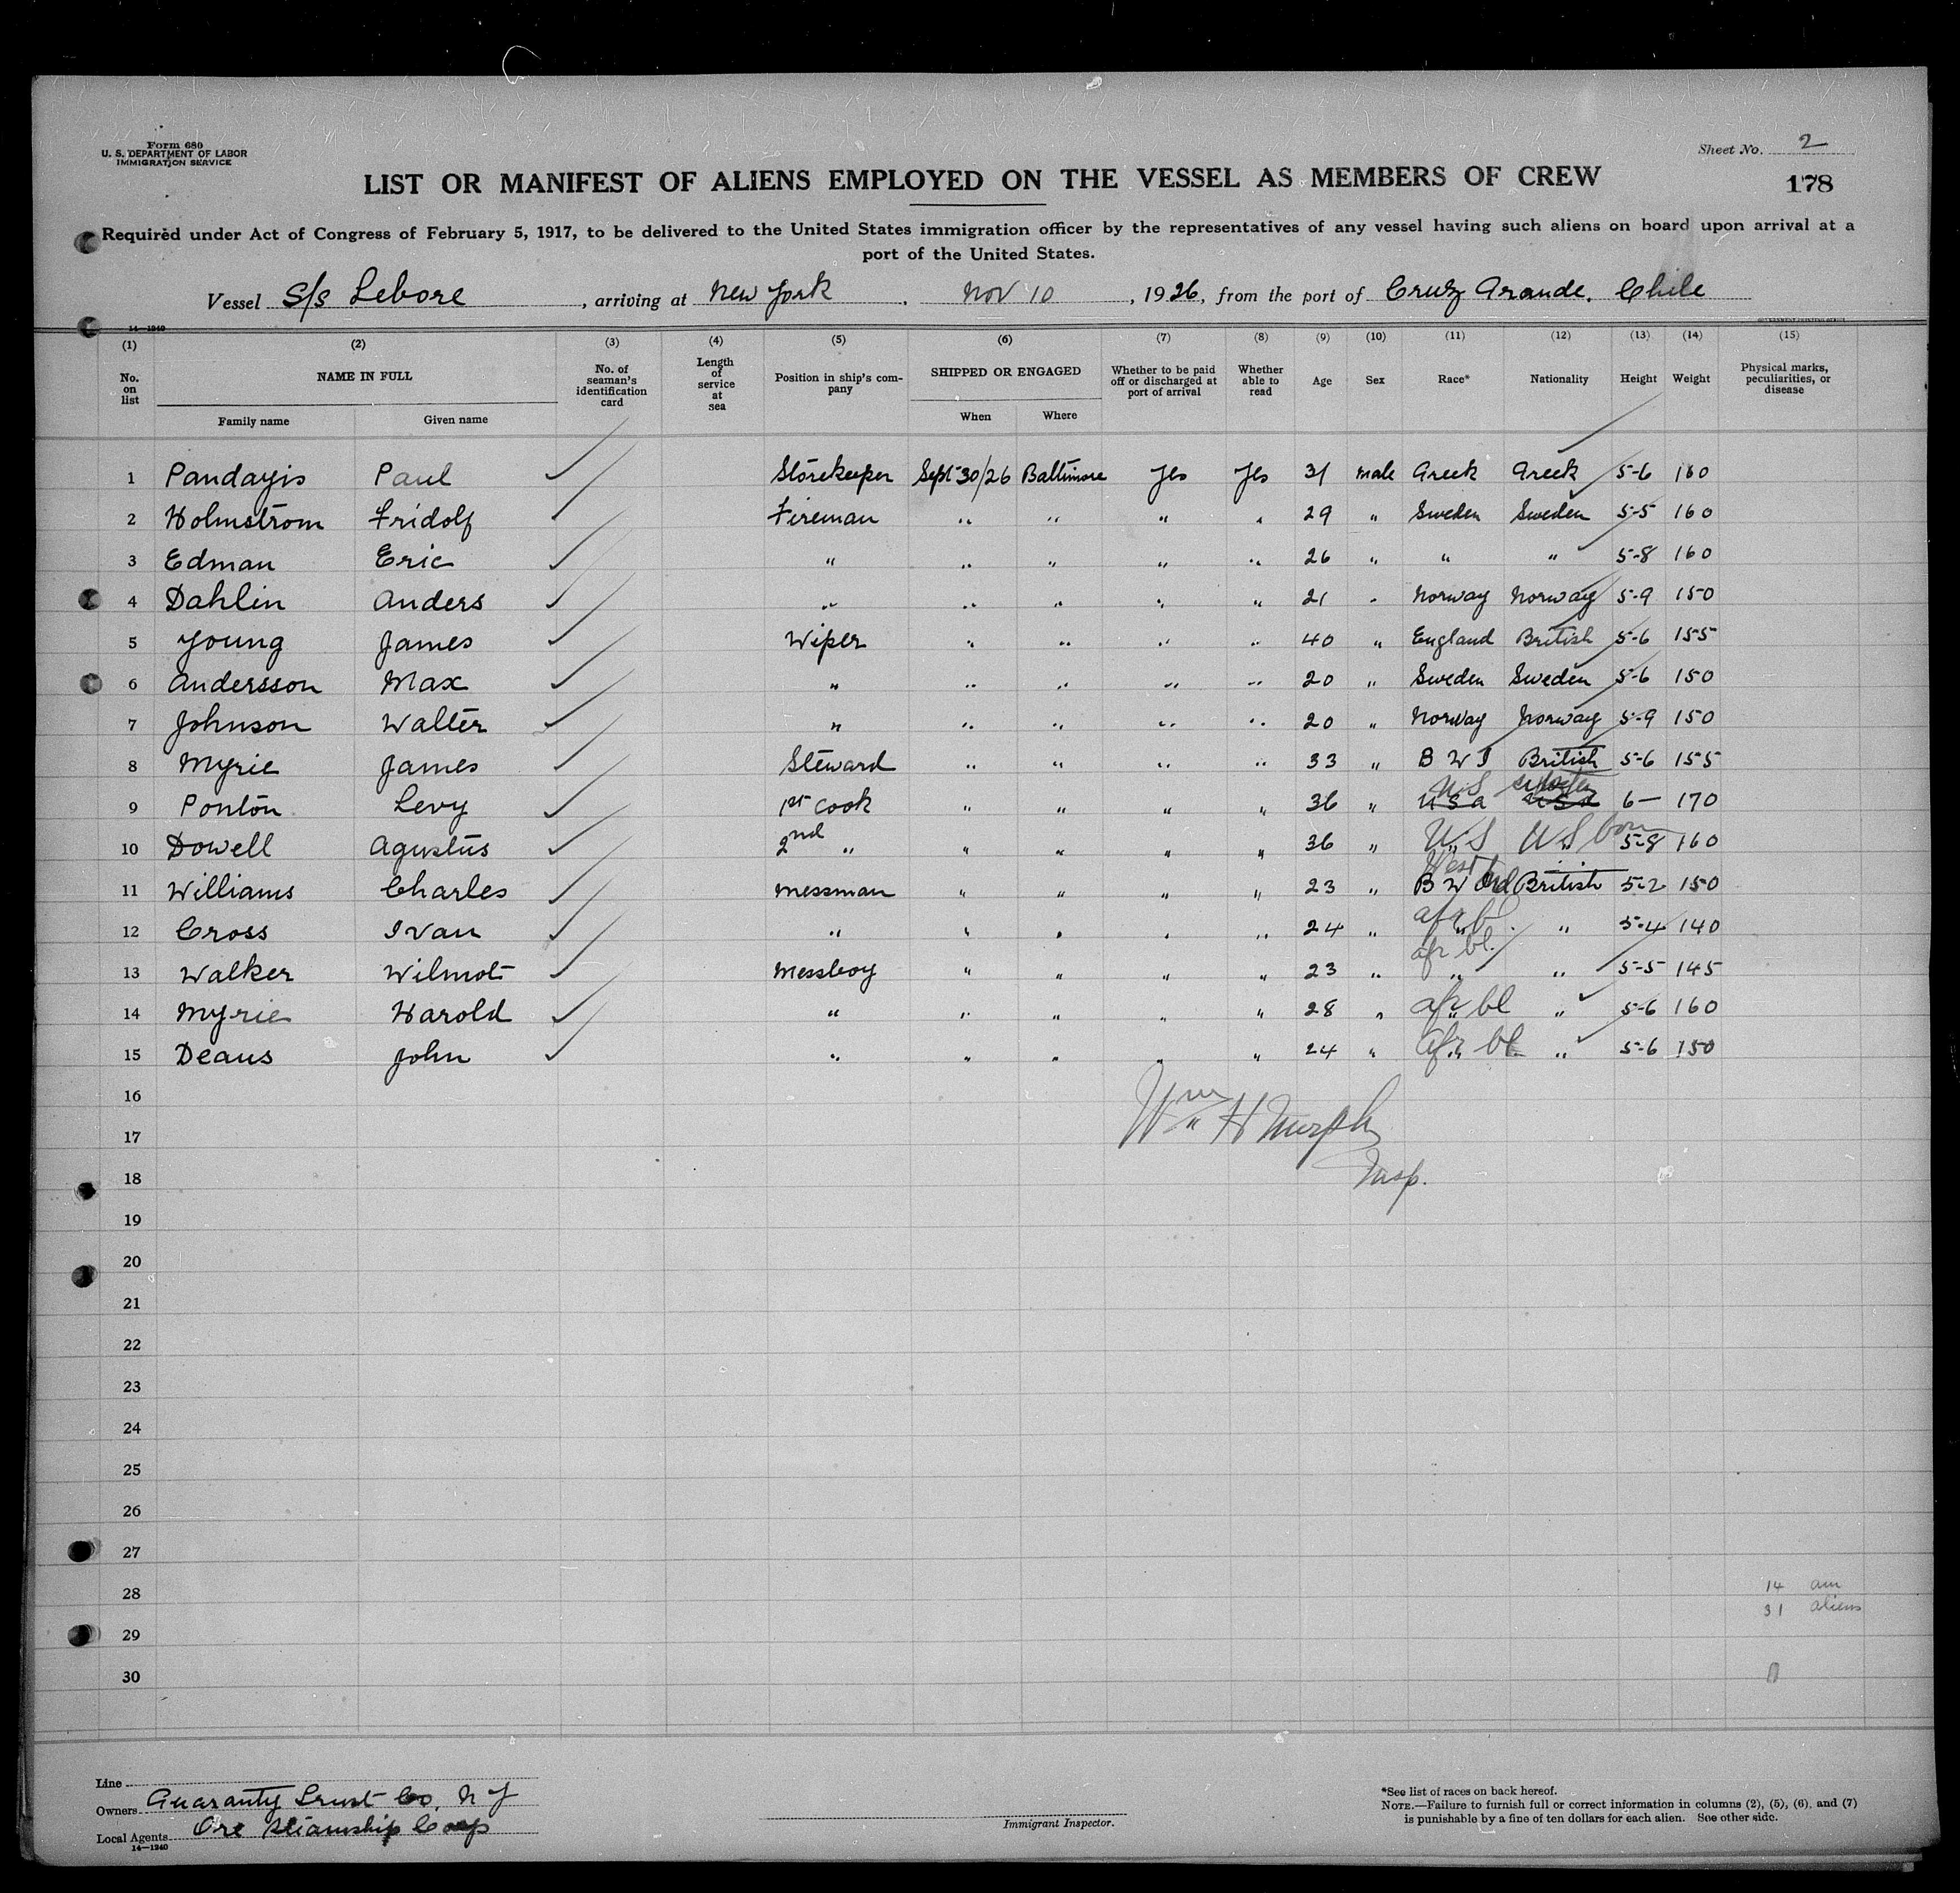 Form 680
U. S. DEPARTMENT OF LABOR
IMMIGRATION SERVICE
Sheet No. 2
LIST OR MANIFEST OF ALIENS EMPLOYED ON THE VESSEL AS MEMBERS OF CREW
178
Required under Act of Congress of February 5, 1917, to be delivered to the United States immigration officer by the representatives of any vessel having such aliens on board upon arrival at a
port of the United States.
Vessel S/S Lebore, arriving at New York, Nov 10, 1926, from the port of Cruz Grande, Chile
14—1240
(1) (2) (3) (4) (5) (6) (7) (8) (9) (10) (11) (12) (13) (14) (15)
No. on list NAME IN FULL No. of seaman's identification card Length of service at sea Position in ship's company SHIPPED OR ENGAGED Whether to be paid off or discharged at port of arrival Whether able to read Age Sex Race* Nationality Height Weight Physical marks, peculiarities, or disease
Family name Given name When Where
1 Pandayis Paul Storekeeper Sept 30/26 Baltimore Yes Yes 31 male Greek Greek 5-6 160
2 Holmstrom Fridolf Fireman " " " " 29 " Sweden Sweden 5-5 160
3 Edman Eric " " " " " 26 " " " 5-8 160
4 Dahlin Anders " " " " " 21 " Norway Norway 5-9 150
5 Young James Wiper " " " " 40 " England British 5-6 155
6 Andersson Max " " " " " 20 " Sweden Sweden 5-6 150
7 Johnson Walter " " " " " 20 " Norway Norway 5-9 150
8 Myrie James Steward " " " " 33 " B W I British 5-6 155
US
9 Ponton Levy 1st Cook " " " " 36 " USA USA 6— 170
10 Dowell Agustus 2nd " " " " " 36 " U S U S born 5-8 160
West
11 Williams Charles Messman " " " " 23 " B W Ind British 5-2 150
12 Cross Ivan " " " " " 24 " afr bl. " 5-4 140
13 Walker Wilmot Messboy " " " " 23 " afr bl. " " 5-5 145
14 Myrie Harold " " " " " 28 " afr bl " 5-6 160
15 Deans John " " " " " 24 " afr bl " 5-6 150
16
Wm H Murphy
17
Insp.
18
19
20
21
22
23
24
25
26
27
28 14 am
31 aliens
29
30
Line
Owners Guaranty Trust Co, N Y
Local Agents Ore Steamship Corp
14—1240
Immigrant Inspector.
*See list of races on back hereof.
NOTE.—Failure to furnish full or correct information in columns (2), (5), (6), and (7)
is punishable by a fine of ten dollars for each alien. See other side.